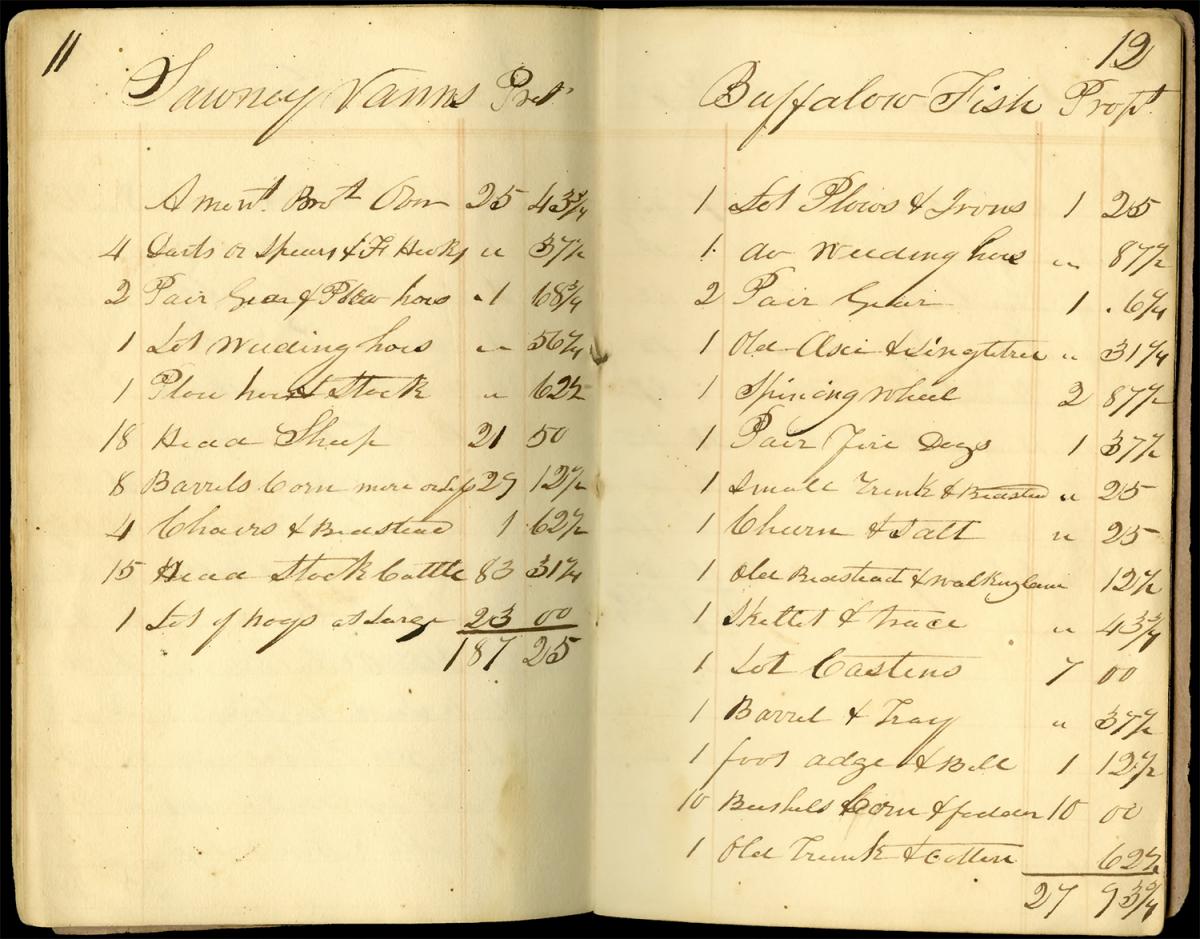 11
Sawney Vanns Prot
Amount Brot Over 25 43¾
4 Darts or Spears & F Hooks " 37½
2 Pair Gear & Plow hoes 1 68¾
1 Lot Weeding hoes " 56¼
1 Plow hoes & Stock " 62½
18 Head Sheep 21 50
8 Barrels Corn more or less 29 12½
4 Chairs & Beadstead 1 62½
15 Head Stock Cattle 83 31¼
1 Lot of hogs at Large 23 00
187 25
12
Buffalow Fish Propt
1 Lot Plows & Irons 1 25
1 do Weeding hoes " 87½
2 Pair Gear 1 6¼
1 Old Axe & Singletree " 31¼
1 Spining Wheel 2 87½
1 Pair Fire Dogs 1 37½
1 Small Trunk & Beastead " 25
1 Churn & Salt " 25
1 Old Beadstead & Walkingcane 12½
1 Skillet & trace " 43¾
1 Lot Castens 7 00
1 Barrel & Tray " 37½
1 foot adge & Bell 1 12½
10 Bushels Corn & fodder 10 00
1 Old Trunk & Cotton 62½
27 93¾